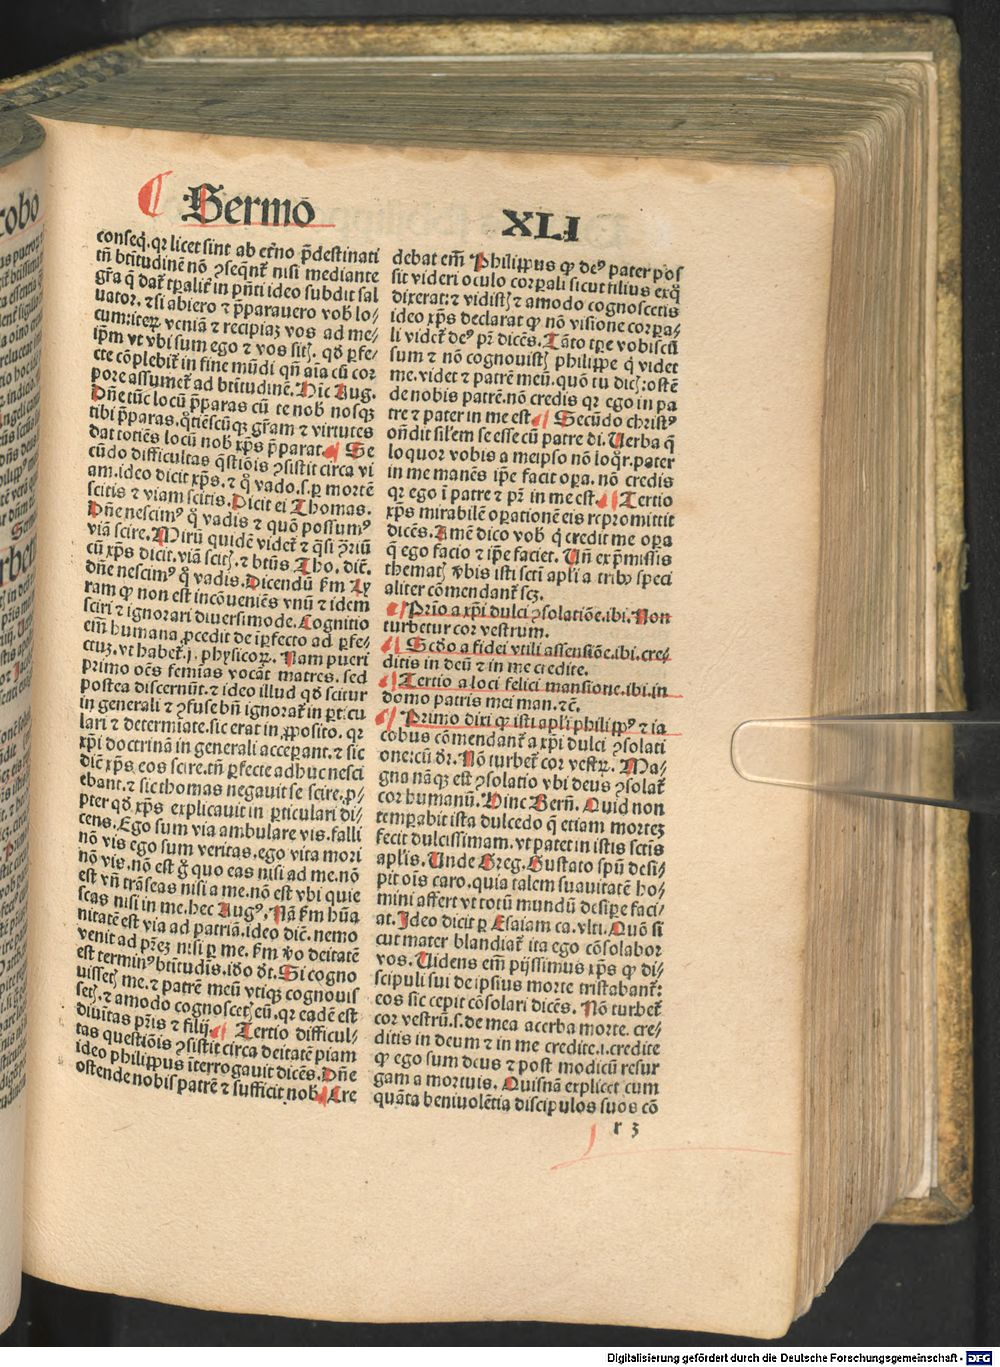 Sermo XLI
conseq̃. qr licet sint ab et̃no p̃destinati
tñ btĩtudinẽ nõ ꝯseqñt̃ nisi mediante
gr̃a q̃ dat̃ tꝑalit̃ in pñti ideo subdit sal
uator. ⁊ si abiero ⁊ p̃parauero vob̃ lo/
cum: iteꝝ veniã ⁊ recipiaz vos ad me/
ip̃m vt vbi sum ego ⁊ vos sitꝭ. qđ ꝑfe/
cte cõplebit̃ in fine mũdi qñ aĩa cũ cor
pore assumet̃ ad btĩtudinẽ. Hic Aug.
Dñe tũc locũ p̃paras cũ te nob̃ nosqꝫ
tibi p̃paras. q̃tiẽscũqꝫ gr̃am ⁊ virtutes
dat totiẽs locũ nob̃ xp̃s p̃parat. ¶ Se
cũdo difficultas q̃stiõis ꝯsistit circa vi
am. ideo dicit xp̃s. ⁊ q̃ vado. s. ꝑ mortẽ
scitis ⁊ viam scitis. Dicit ei Thomas.
Dñe nescimꝰ q̃ vadis ⁊ quõ possumꝰ
viã scire. Mirũ quidẽ videt̃ ⁊ q̃si ꝯ̃riũ
cũ xp̃s dicit. viã scitꝭ. ⁊ btũs Tho. dic̃.
dñe nescimꝰ q̃ vadis. Dicendũ ẜm Ly
ram ꝙ non est incõueniẽs vnũ ⁊ idem
sciri ⁊ ignorari diuersimode. Cognitio
em̃ humana ꝓcedit de iꝑfecto ad ꝑfe/
ctuꝫ. vt habet̃. j. physicoꝝ. Nam pueri
primo oẽs femĩas vocãt matres. sed
postea discernũt. ⁊ ideo illud qđ scitur
in generali ⁊ ꝯfuse bñ ignorat̃ in ꝑticu
lari ⁊ determiate. sic erat in ꝓposito. qr
xp̃i doctrinã in generali acceꝑant. ⁊ sic
dic̃ xp̃s eos scire. tñ ꝑfecte adhuc nesci
ebant. ⁊ sic thomas negauit se scire. ꝓ/
pter qđ xp̃s explicauit in ꝑticulari di/
cens. Ego sum via ambulare vis. falli
nõ vis ego sum veritas. ego vita mori
nõ vis. nõ est g̊ quo eas nisi ad me. nõ
est vñ trãseas nisi a me. nõ est vbi quie
scas nisi in me. hec Augꝰ. Nã ẜm hũa
nitatẽ est via ad patriã. ideo dic̃. nemo
venit ad pr̃eꝫ nisi ꝑ me. ẜm ꝟo deitatẽ
est terminꝰ btĩtudĩs. iđo đt. Si cogno
uissetꝭ me. ⁊ patrẽ meũ vtiqꝫ cognouis
setꝭ. ⁊ amodo cognoscetꝭ eũ. qr eadẽ est
diuĩtas pr̃is ⁊ filij. ¶ Tertio difficul/
tas questiõis ꝯsistit circa deitatẽ piam
ideo philippus ĩterrogauit dicẽs. Dñe
ostende nobis patrẽ ⁊ sufficit nob̃. Cre
debat em̃ Philippus ꝙ deꝰ pater pos
sit videri oculo corꝑali sicut filius ex q̃
dixerat: ⁊ vidistꝭ ⁊ amodo cognoscetis
ideo xp̃s declarat ꝙ nõ visione corꝑa/
li videt̃ deꝰ pr̃ dicẽs. Tãto tꝑe vobiscũ
sum ⁊ nõ cognouistꝭ philippe q̃ videt
me. videt ⁊ patrẽ meũ. quõ tu dicꝭ: ostẽ
de nobis patrẽ. nõ credis qr ego in pa
tre ⁊ pater in me est. ¶ Secũdo christꝰ
oñdit sil̃em se esse cũ patre đi. Uerba q̃
loquor vobis a meipso nõ loq̃r. pater
in me manẽs ip̃e facit oꝑa. nõ credis
qr ego ĩ patre ⁊ pr̃ in me est. ¶ Tertio
xp̃s mirabilẽ oꝑationẽ eis repromittit
dicẽs. Amẽ dico vob̃ q̃ credit me oꝑa
q̃ ego facio ⁊ ip̃e faciet. Uñ ex p̃missis
thematꝭ ꝟbis isti sctĩ apl̃i a tribꝰ speci
aliter cõmendant̃ scꝫ.
¶ Prĩo a xp̃i dulci ꝯsolatiõe. ibi. Non
turbetur cor vestrum.
¶ Scđo a fidei vtili assensiõe. ibi. cre/
ditis in deũ ⁊ in me credite.
¶ Tertio a loci felici mansione. ibi. in
domo patris mei man. ⁊c̃.
¶ Primo dixi ꝙ isti apl̃i philippꝰ ⁊ ia
cobus cõmendant̃ a xp̃i dulci ꝯsolati
one: cũ đr. Nõ turbet̃ cor vestꝝ. Ma/
gna nãqꝫ est ꝯsolatio vbi deus ꝯsolat̃
cor humanũ. Hinc Berñ. Quid non
temꝑabit ista dulcedo q̃ etiam morteꝫ
fecit dulcissimam. vt patet in istis sctĩs
apl̃is. Unde Greg. Gustato spũ desi/
pit oĩs caro. quia talem suauitatẽ ho/
mini affert vt totũ mundũ desiꝑe faci/
at. Ideo dicit ꝑ Esaiam ca. vlti. Quõ si
cut mater blandiat̃ ita ego cõsolabor
vos. Uidens em̃ pijssimus xp̃s ꝙ di/
scipuli sui de ipsius morte tristabant̃:
eos sic cepit cõsolari dicẽs. Nõ turbet̃
cor vestrũ. s. de mea acerba morte. cre/
ditis in deum ⁊ in me credite. i. credite
ꝙ ego sum deus ⁊ post modicũ resur
gam a mortuis. Quisnã explicet cum
quãta beniuolẽtia discipulos suos cõ
r 3
Digitalisierung gefördert durch die Deutsche Forschungsgemeinschaft - DFG